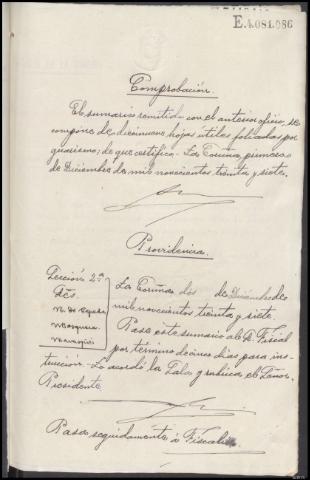 E.4.081.086
Comprobación.
El sumario remitido con el anterior oficio, se
compone de diecinueve hojas útiles foliadas por
guarismo; de que certifico.- La Coruña, primero
de Diciembre de mil novecientos treinta y siete.
Providencia.
Sección 2ª
La Coruña dos de Diciembre de
mil novecientos treinta y siete.
Pase este sumario al Sr. Fiscal
por término de cinco días para ins-
trucción.- Lo acordó la Sala y rubrica el Señor
Presidente.
Pasa seguidamente a Fiscalía.